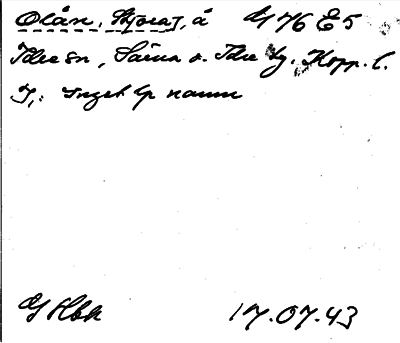 Olån, Stora, å   176 E5
Idre sn, Särna o. Idre tg. Kopp. l.
I,: Inget lp namn
G Hbk   17.07.43